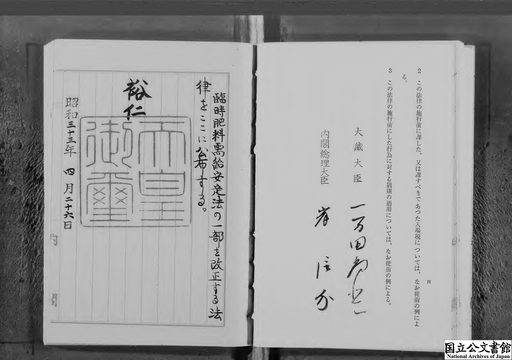 2 この法律の施行前に課した、又は課すべきであつた入場税については、なお従前の例によ
る。
3 この法律の施行前にした行為に対する罰則の適用については、なお従前の例による。
大蔵大臣 一万田尚登
内閣総理大臣 岸信介
臨時肥料需給安定法の一部を改正する法
律をここに公布する。
裕仁
天皇
御璽
昭和三十三年四月二十六日
国立公文書館
National Archives of Japan